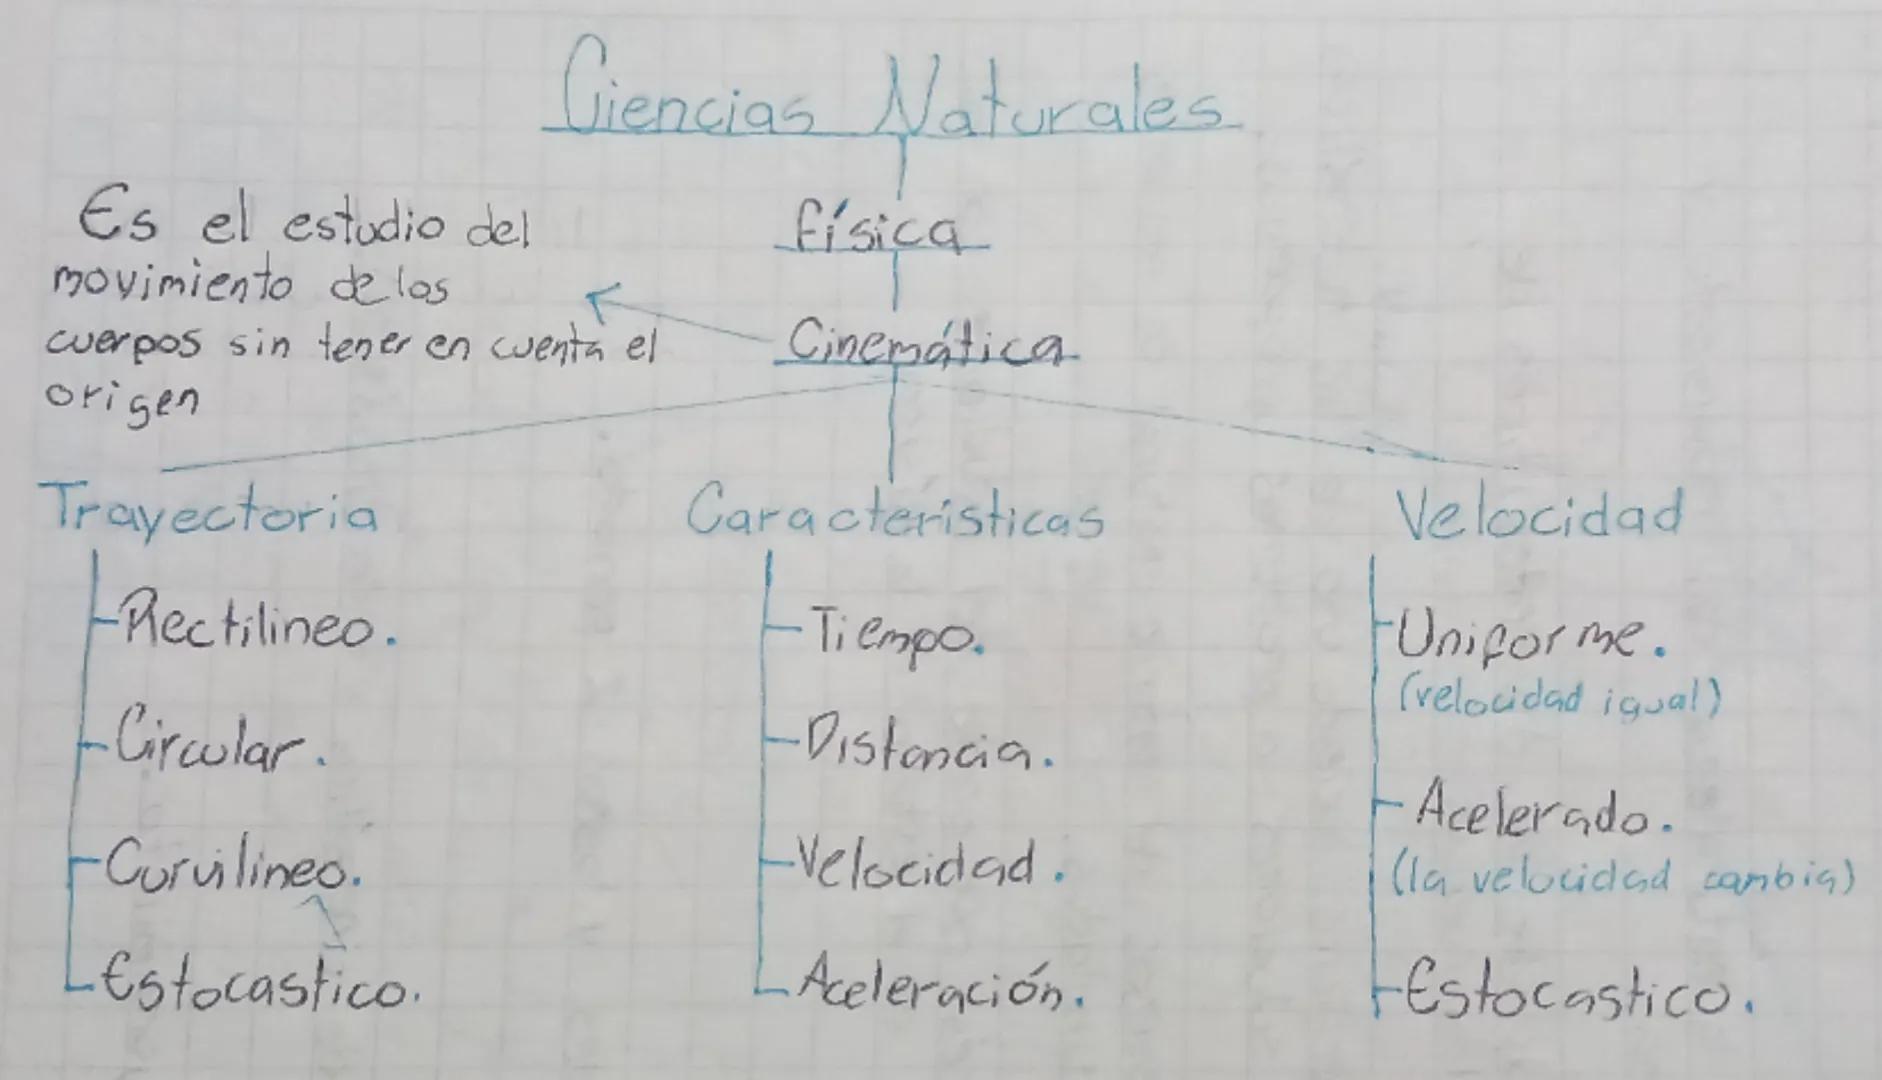 Ciencias Naturales
física
Es el estudio del
movimiento de los
cuerpos sin tener en cuenta el
origen
Cinemática
Trayectoria
Rectilineo.
Circular.
Curvilineo.
Estocastico.
Caracteristicas
Tiempo.
Distancia.
Velocidad.
Aceleración.
Velocidad
Uniforme.
(velocidad igual)
Acelerado.
(la velocidad cambia)
Estocastico.